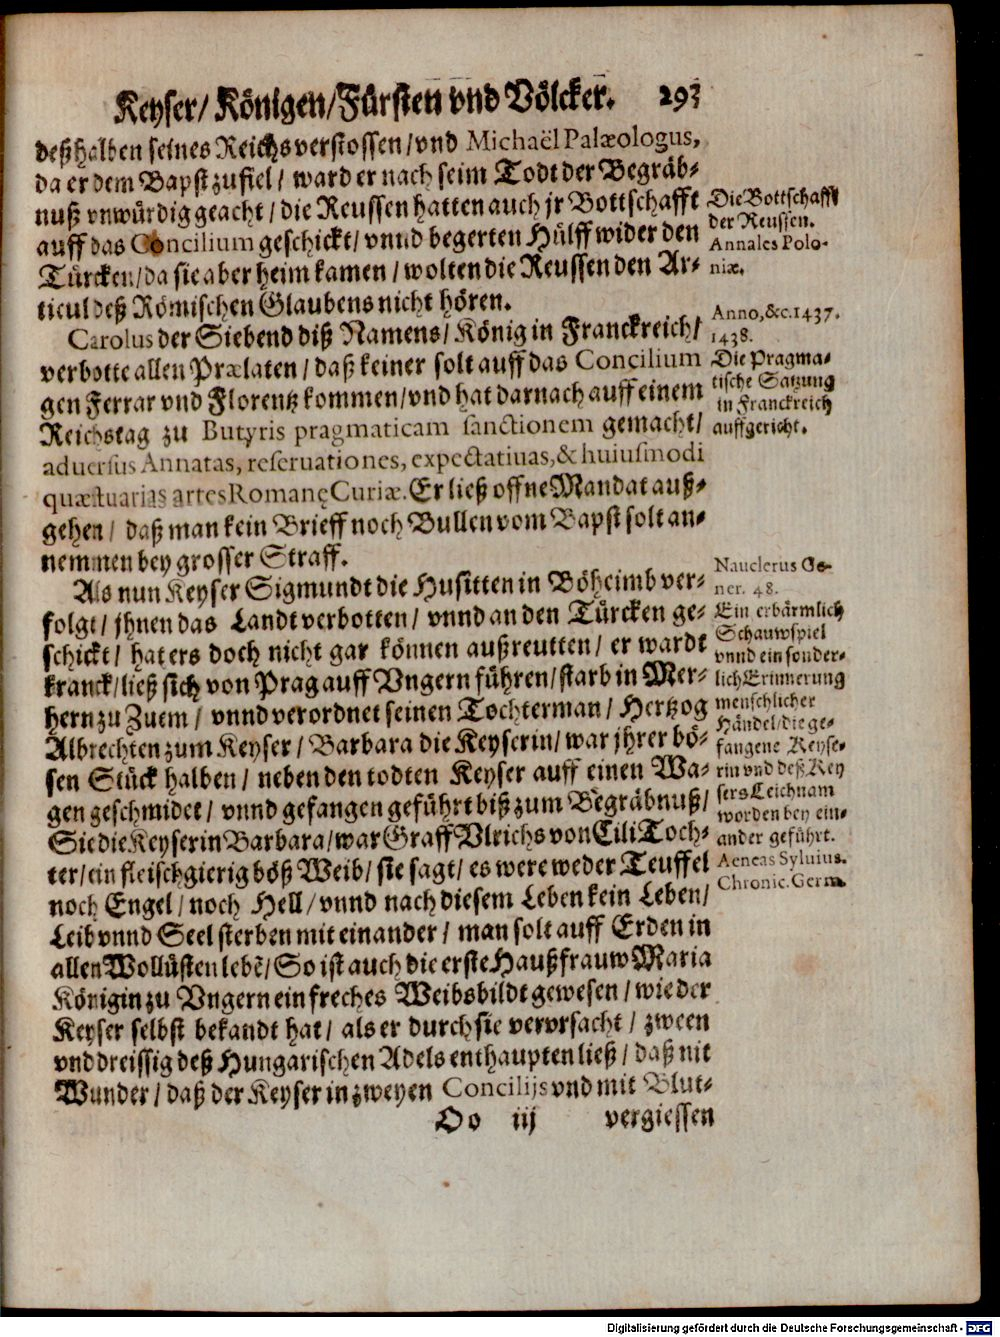 Keyser/ Königen/Fürsten vnd Völcker. 293
deßhalben seines Reichs verstossen/vnd Michaël Palæologus,
da er dem Bapst zufiel/ ward er nach seim Todt der Begräb-
nuß vnwürdig geacht/ die Reussen hatten auch jr Bottschafft
auff das Concilium geschickt/ vnnd begerten Hülff wider den
Türcken/da sie aber heim kamen/ wolten die Reussen den Ar-
ticul deß Römischen Glaubens nicht hören.
Die Bottschafft
der Reussen.
Annales Polo-
niæ.
Carolus der Siebend diß Namens/ König in Franckreich/
verbotte allen Prælaten/ daß keiner solt auff das Concilium
gen Ferrar vnd Florentz kommen/vnd hat darnach auff einem
Reichstag zu Butyris pragmaticam sanctionem gemacht/
aduersus Annatas, reseruationes, expectatiuas, & huiusmodi
quæstuarias artes Romanę Curiæ. Er ließ offne Mandat auß-
gehen/ daß man kein Brieff noch Bullen vom Bapst solt an-
nemmen bey grosser Straff.
Anno, &c. 1437.
1438.
Die Pragma-
tische Satzung
in Franckreich
auffgericht.
Als nun Keyser Sigmundt die Husitten in Böheimb ver-
folgt/ jhnen das Landt verbotten/ vnnd an den Türcken ge-
schickt/ hat ers doch nicht gar können außreutten/ er wardt
kranck/ließ sich von Prag auff Vngern führen/starb in Mer-
hern zu Znem/ vnnd verordnet seinen Tochterman/ Hertzog
Albrechten zum Keyser/ Barbara die Keyserin/ war jhrer bö-
sen Stück halben/ neben den todten Keyser auff einen Wa-
gen geschmidet/ vnnd gefangen geführt biß zum Begräbnuß/
Sie die Keyserin Barbara/war Graff Vlrichs von Cili Toch-
ter/ein fleischgierig böß Weib/ sie sagt/ es were weder Teuffel
noch Engel/ noch Hell/ vnnd nach diesem Leben kein Leben/
Leib vnnd Seel sterben mit einander/ man solt auff Erden in
allen Wollüsten lebē/ So ist auch die erste Haußfrauw Maria
Königin zu Vngern ein freches Weibsbildt gewesen/ wie der
Keyser selbst bekandt hat/ als er durch sie vervrsacht/ zween
vnd dreissig deß Hungarischen Adels enthaupten ließ/ daß nit
Wunder/ daß der Keyser in zweyen Concilijs vnd mit Blut-
Nauclerus Ge-
ner. 48.
Ein erbärmlich
Schauwspiel
vnnd ein sonder-
lich Erinnerung
menschlicher
Händel/die ge-
fangene Keyse-
rin vnd deß Key
sers Leichnam
worden bey ein-
ander geführt.
Aeneas Syluius.
Chronic. Germ.
Oo iij vergiessen
Digitalisierung gefördert durch die Deutsche Forschungsgemeinschaft - DFG